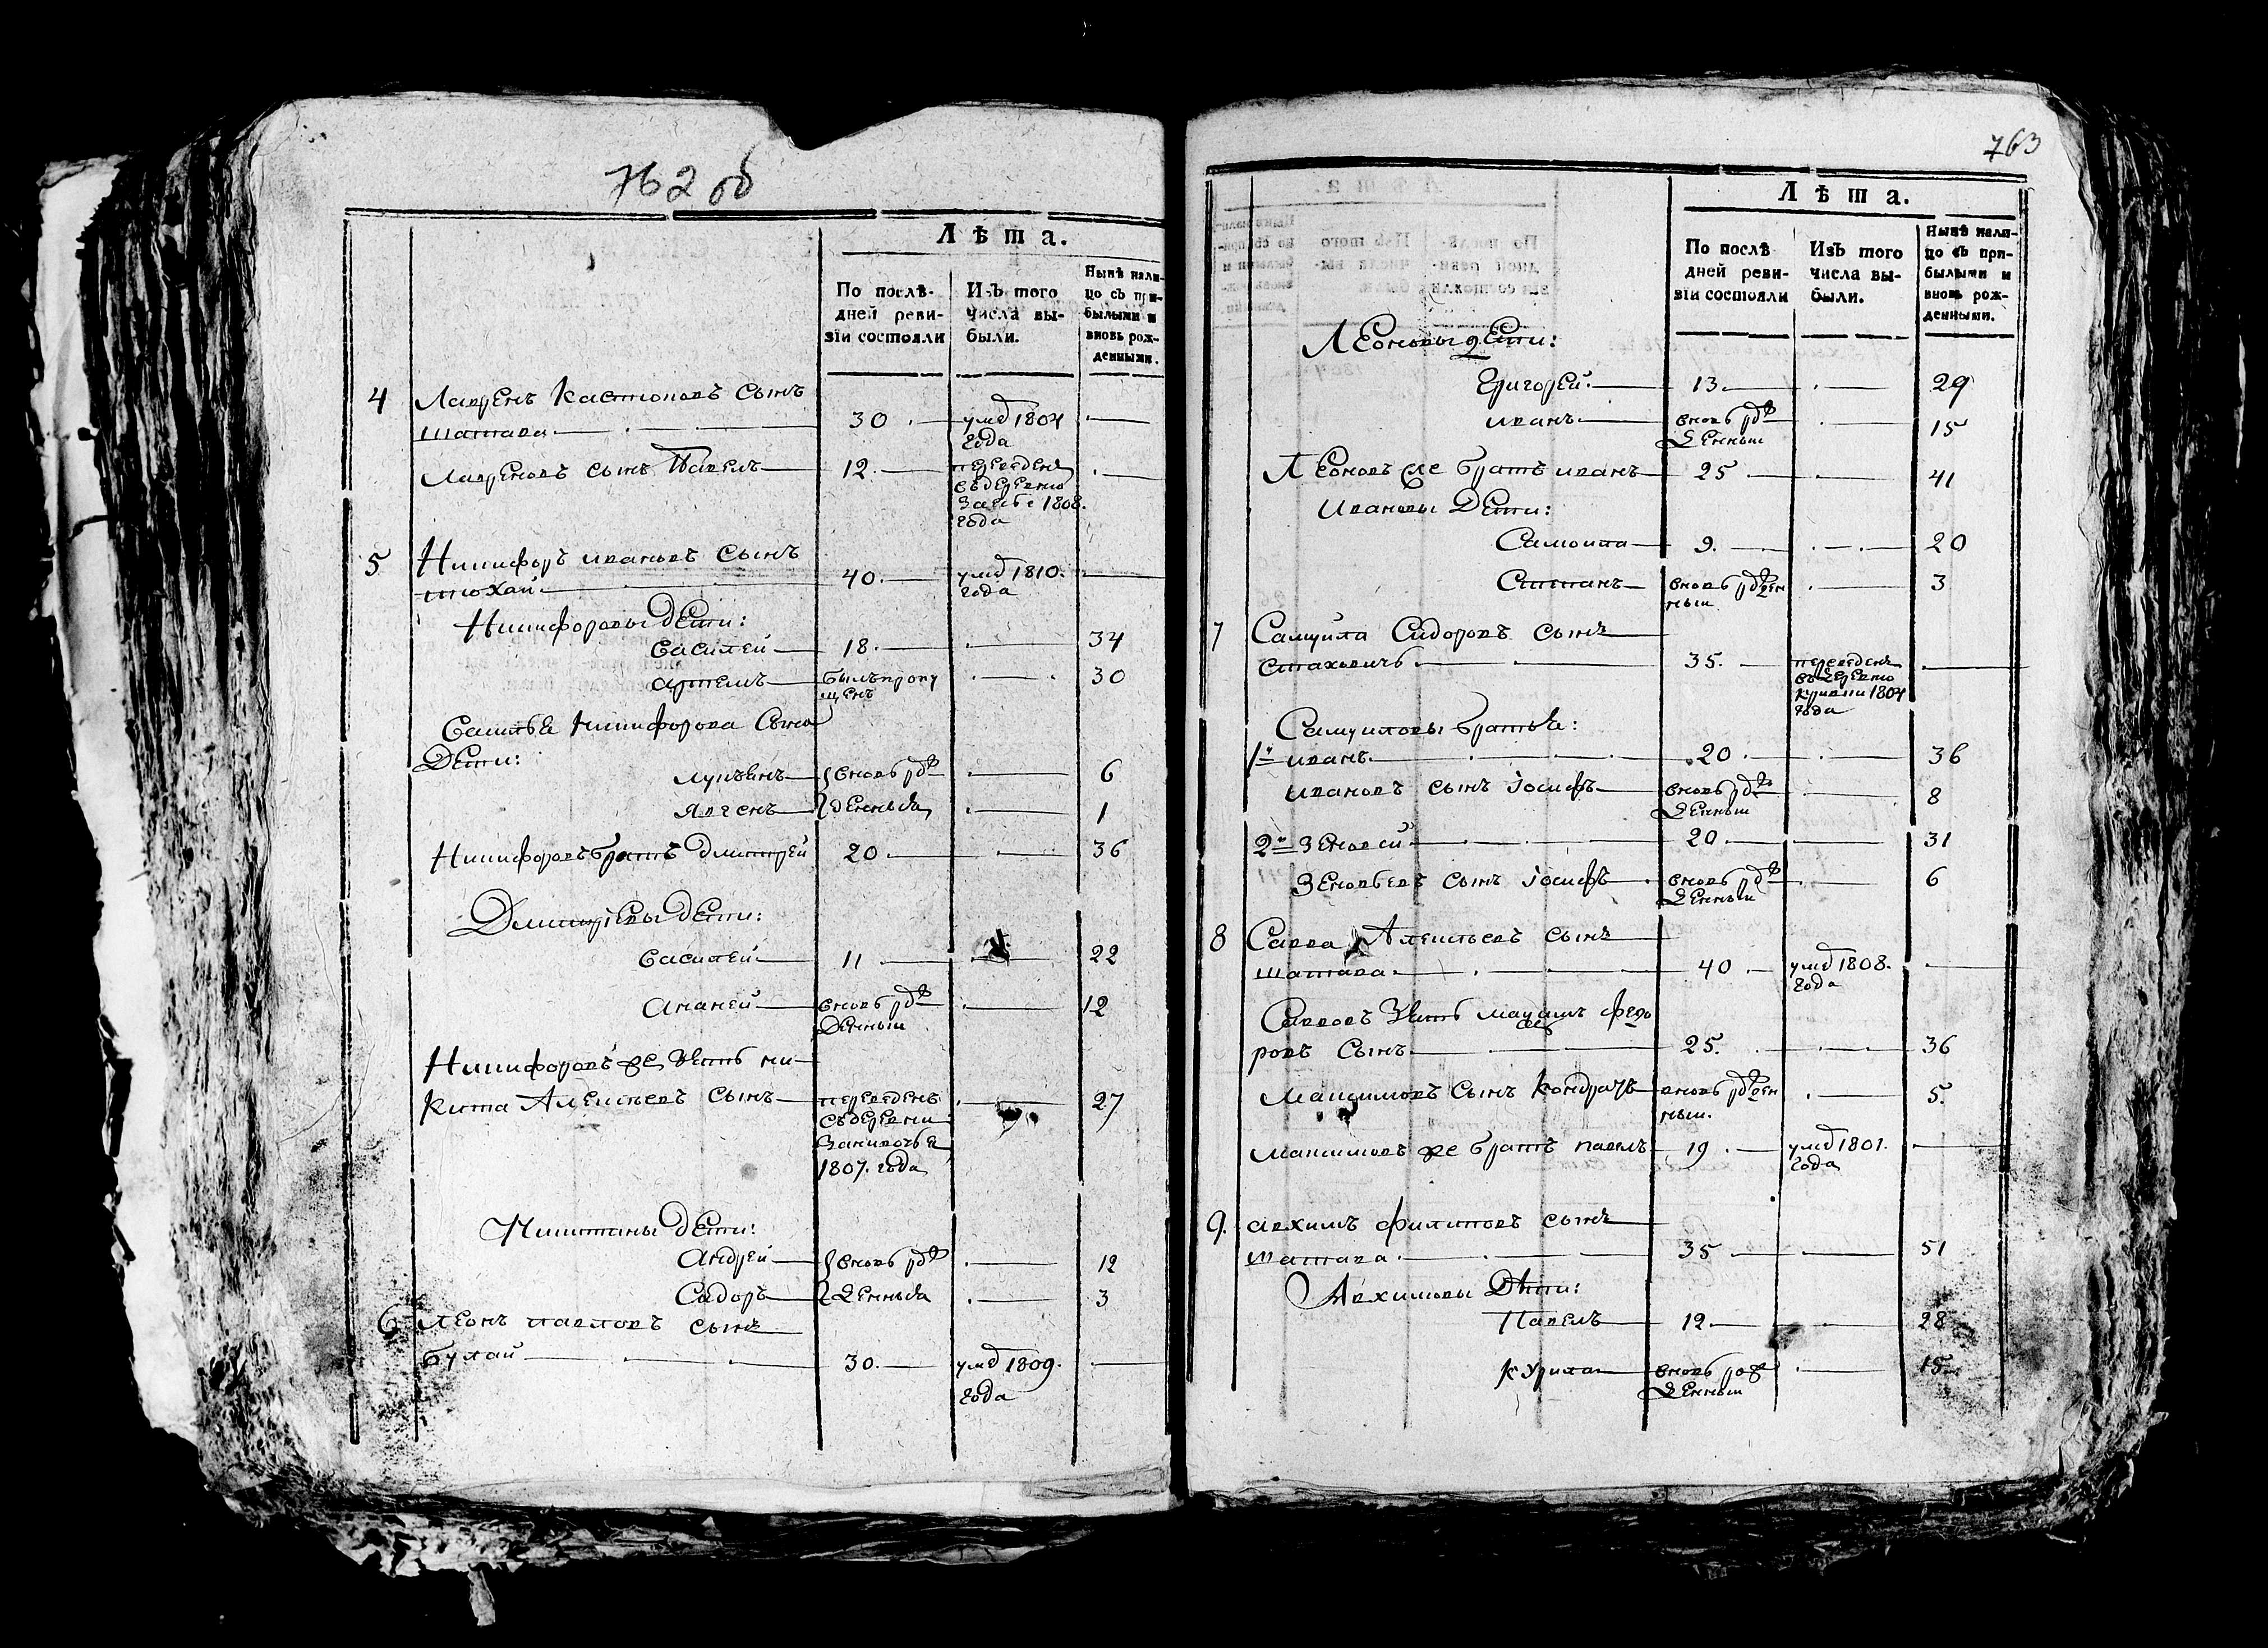 762 об
Лѣта.
По послѣ-
дней реви-
зіи состояли
Изъ того
числа вы-
были.
Нынѣ нали-
цо съ при-
былыми и
вновь рож-
денными.
4 Лавренъ Кастюковъ сынъ
шатава 30 умд 1804
года
Лавреновъ сынъ Павелъ 12. переведенъ
въ деревню
1808.
года
5 Никифоръ ивановъ сынъ
40. умд 1810.
года
Никифоровы дети:
василей 18. 34
артемъ былъ пропу 30
щенъ
василья Никифорова сына
Дети:
вновь рож 6
денныя 1
Никифоровъ братъ дмитрей 20 36
Дмитріевы дети:
василей 11 22
Ананей вновь рож 12
Денныи
Никифоровъ же зеть ни-
кита Алексѣевъ сынъ переведенъ 27
съ деревни
1807. года
Никитины дети:
Андрей вновь рож 12
Сидоръ денныя 3
6 Леонъ павловъ сынъ
булай 30. умд 1809.
года
763
Лѣта.
По послѣ
дней реви-
зіи состояли
Изъ того
числа вы-
были.
Нынѣ нали-
цо съ при-
былыми и
вновь рож-
денными.
Леоновы дети:
Григорей 13. 29
иванъ вновь рож 15
денныи
Леоновъ же братъ иванъ 25 41
Ивановы Дети:
Самоила 9. 20
Степанъ вновь рожден 3
ныи
7 Самуйла Сидоровъ сынъ
стаховичъ 35. переведенъ
въ деревню
кривчи 1804
года
Самуиловы братья:
1й иванъ 20 36
ивановъ сынъ іосифъ вновь рож 8
денныи
2й Зеновей 20 31
Зеновьевъ сынъ іосифъ вновь рож 6
денныи
8 Савва Алексѣевъ сынъ
шатава 40 умд 1808.
года
Саввовъ Зеть максимъ федо
ровъ Сынъ 25. 36
Максимовъ сынъ кондратъ вновь рожден 5.
ныи.
максимовъ же братъ павелъ 19 умд 1801.
года
9. авхимъ филиповъ сынъ
шатава 35 51
Авхимовы Дѣти:
Павелъ 12. 28
курила вновь рож 15
денныи